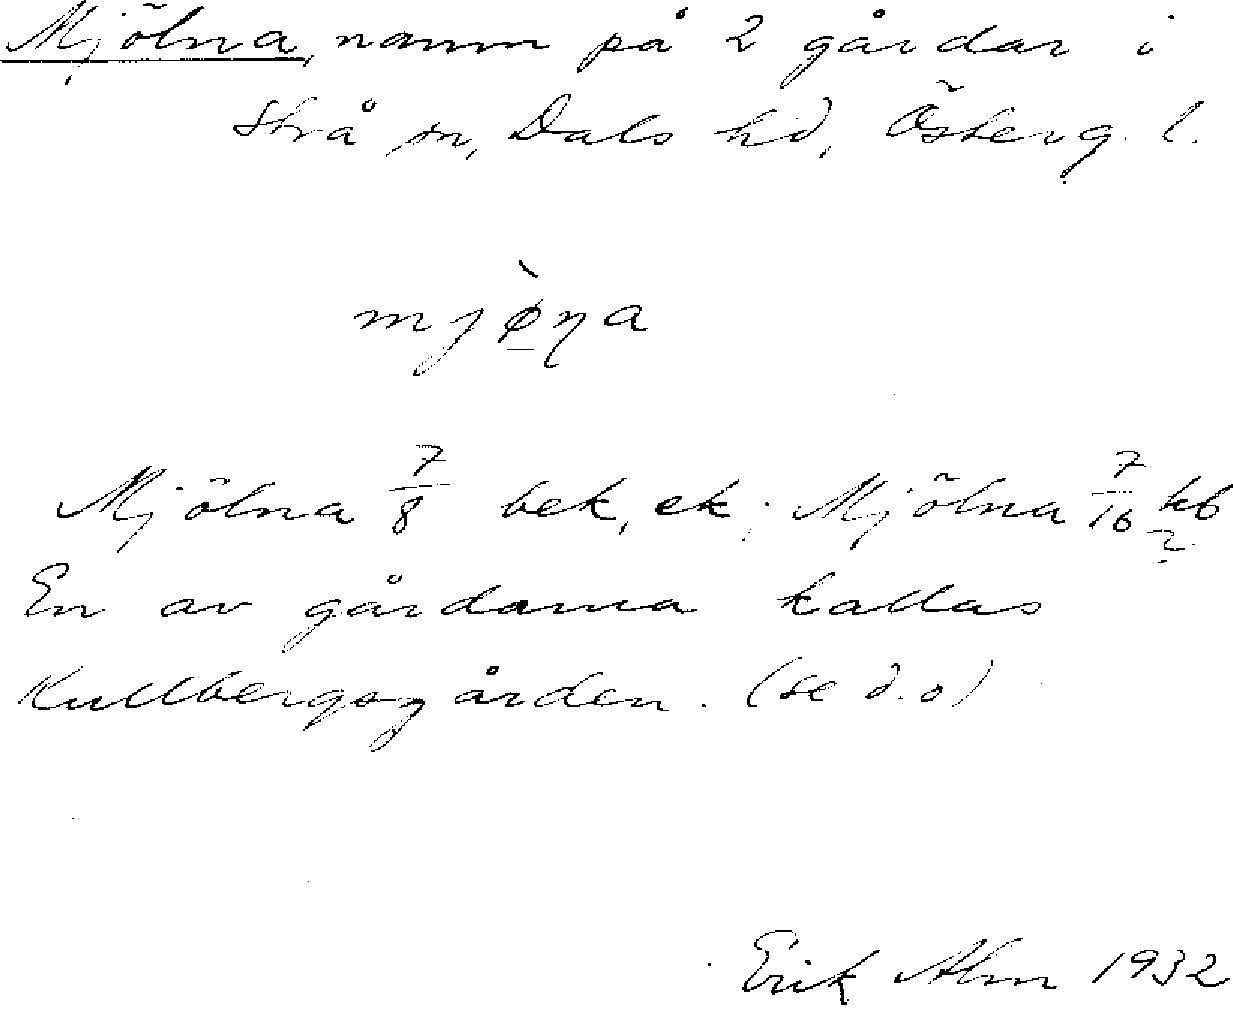 Mjölna, namn på 2 gårdar i
Strå sn, Dals hd, Österg. l.
mjø̀ṉa
Mjölna 7/8 bek, ek; Mjölna 7/16
En av gårdarna kallas
Kullbergsgården. (se d.o)
Erik Alm 1932